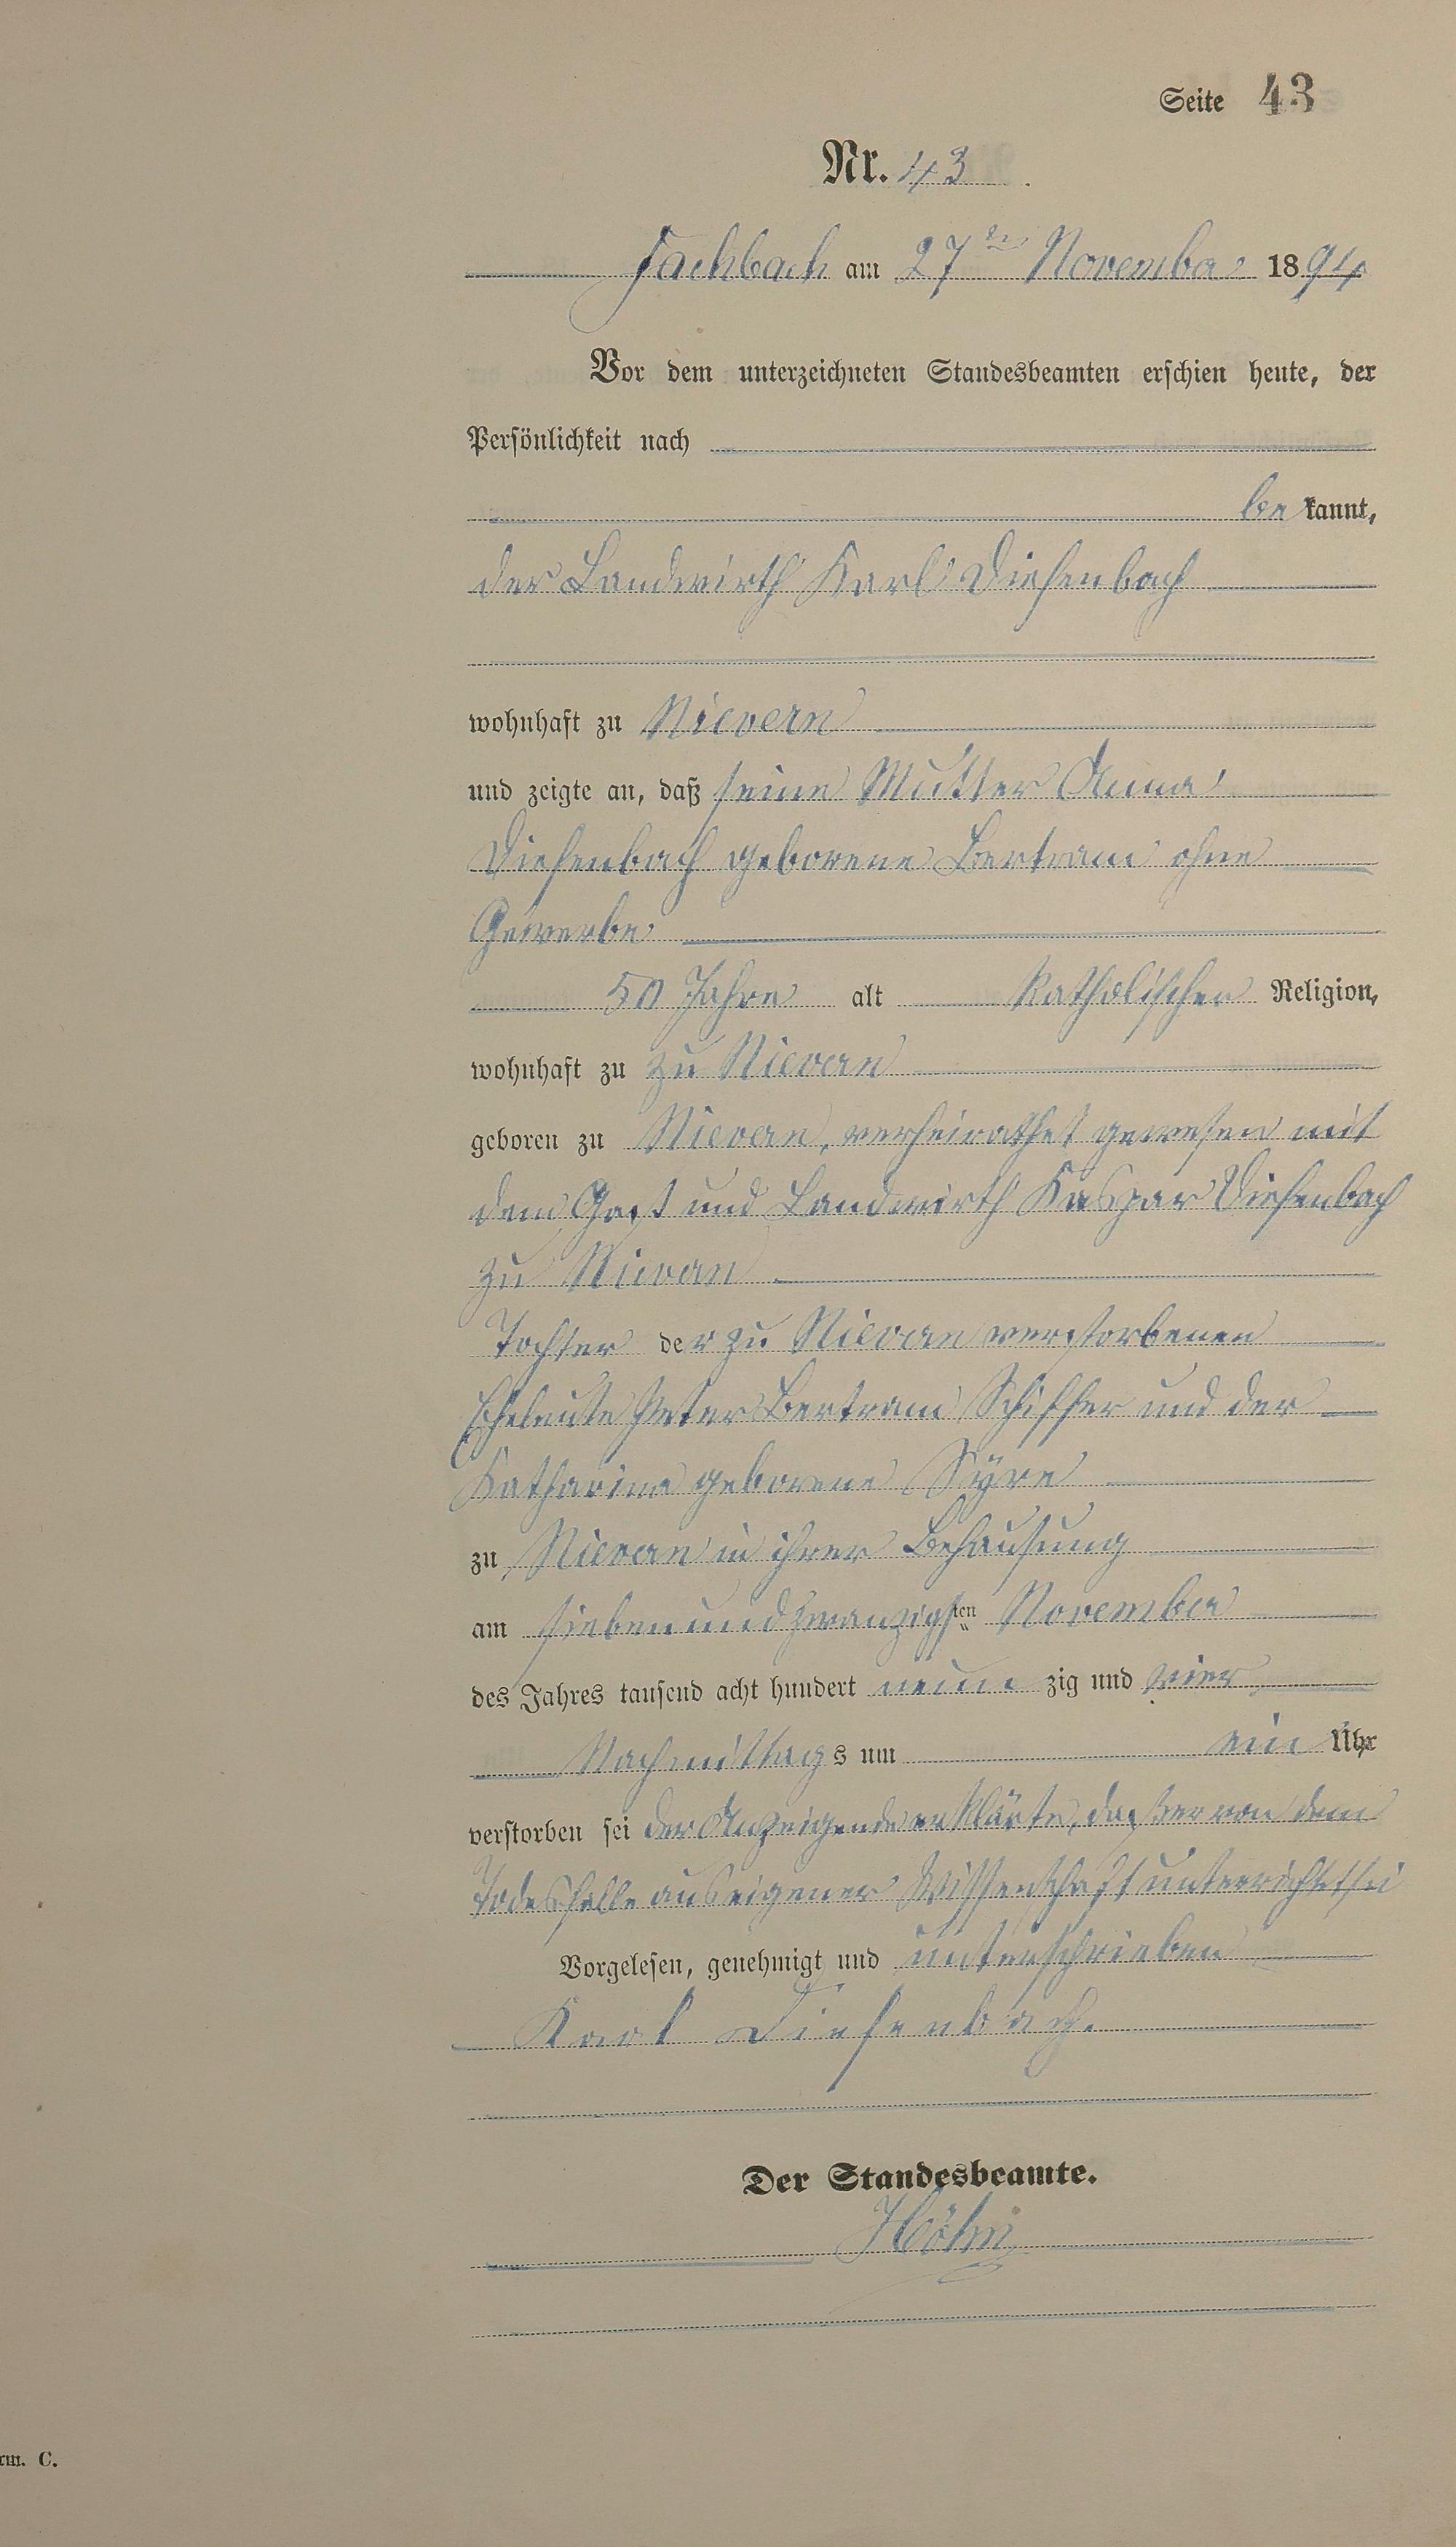 Seite 43
Nr. 43
Fachbach am 27ten November 1894
Vor dem unterzeichneten Standesbeamten erschien heute, der
Persönlichkeit nach
be kannt,
der Landwirth Karl Diesenbach
wohnhaft zu Nievern
und zeigte an, daß seine Mutter Anna
Diesenbach geborene Bertram ohne
Gewerbe
50 Jahre alt katholischer Religion,
wohnhaft zu zu Nievern
geboren zu Nievern, verheirathet gewesen mit
dem Gast und Landwirth Kaspar Diesenbach
zu Nievern
Tochter der zu Nievern verstorbenen
Eheleute Peter Bertram Schiffer und der
Katharina geborene Syre
zu Nievern in ihrer Behausung
am siebenundzwanzigsten November
des Jahres tausend acht hundert neun zig und vier
Nachmittags um ein Uhr
verstorben sei der Anzeigende erklärte, daß er von dem
Todesfalle aus eigener Wissenschaft unterrichtet sei
Vorgelesen, genehmigt und unterschrieben
Karl Diesenbach.
Der Standesbeamte.
Höhn
rm. C.